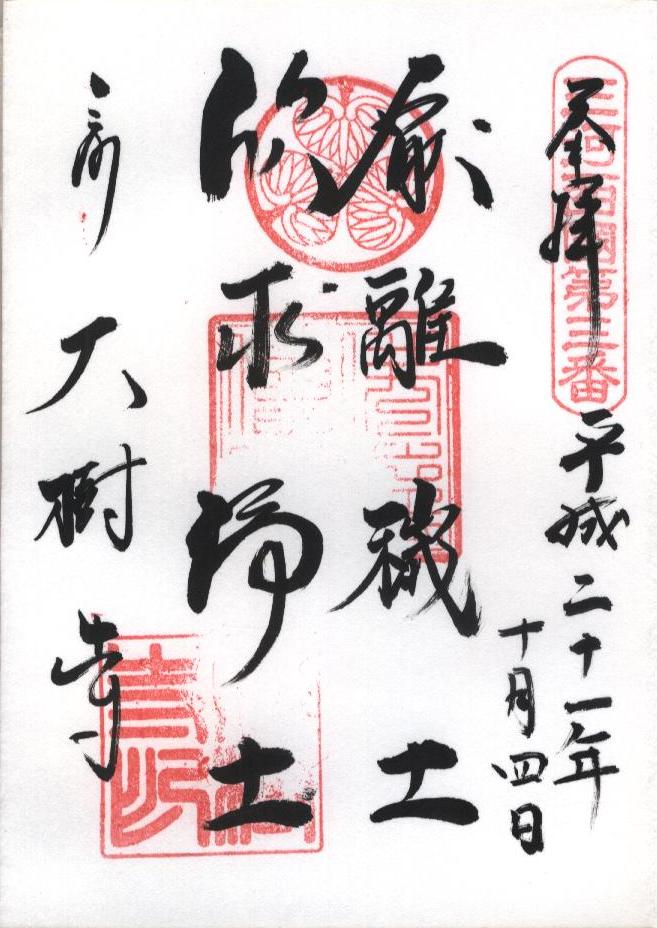 三河西國第三番
奉拝
平成二十一年
十月四日
厭離穢土
欣求浄土
三河
大樹寺